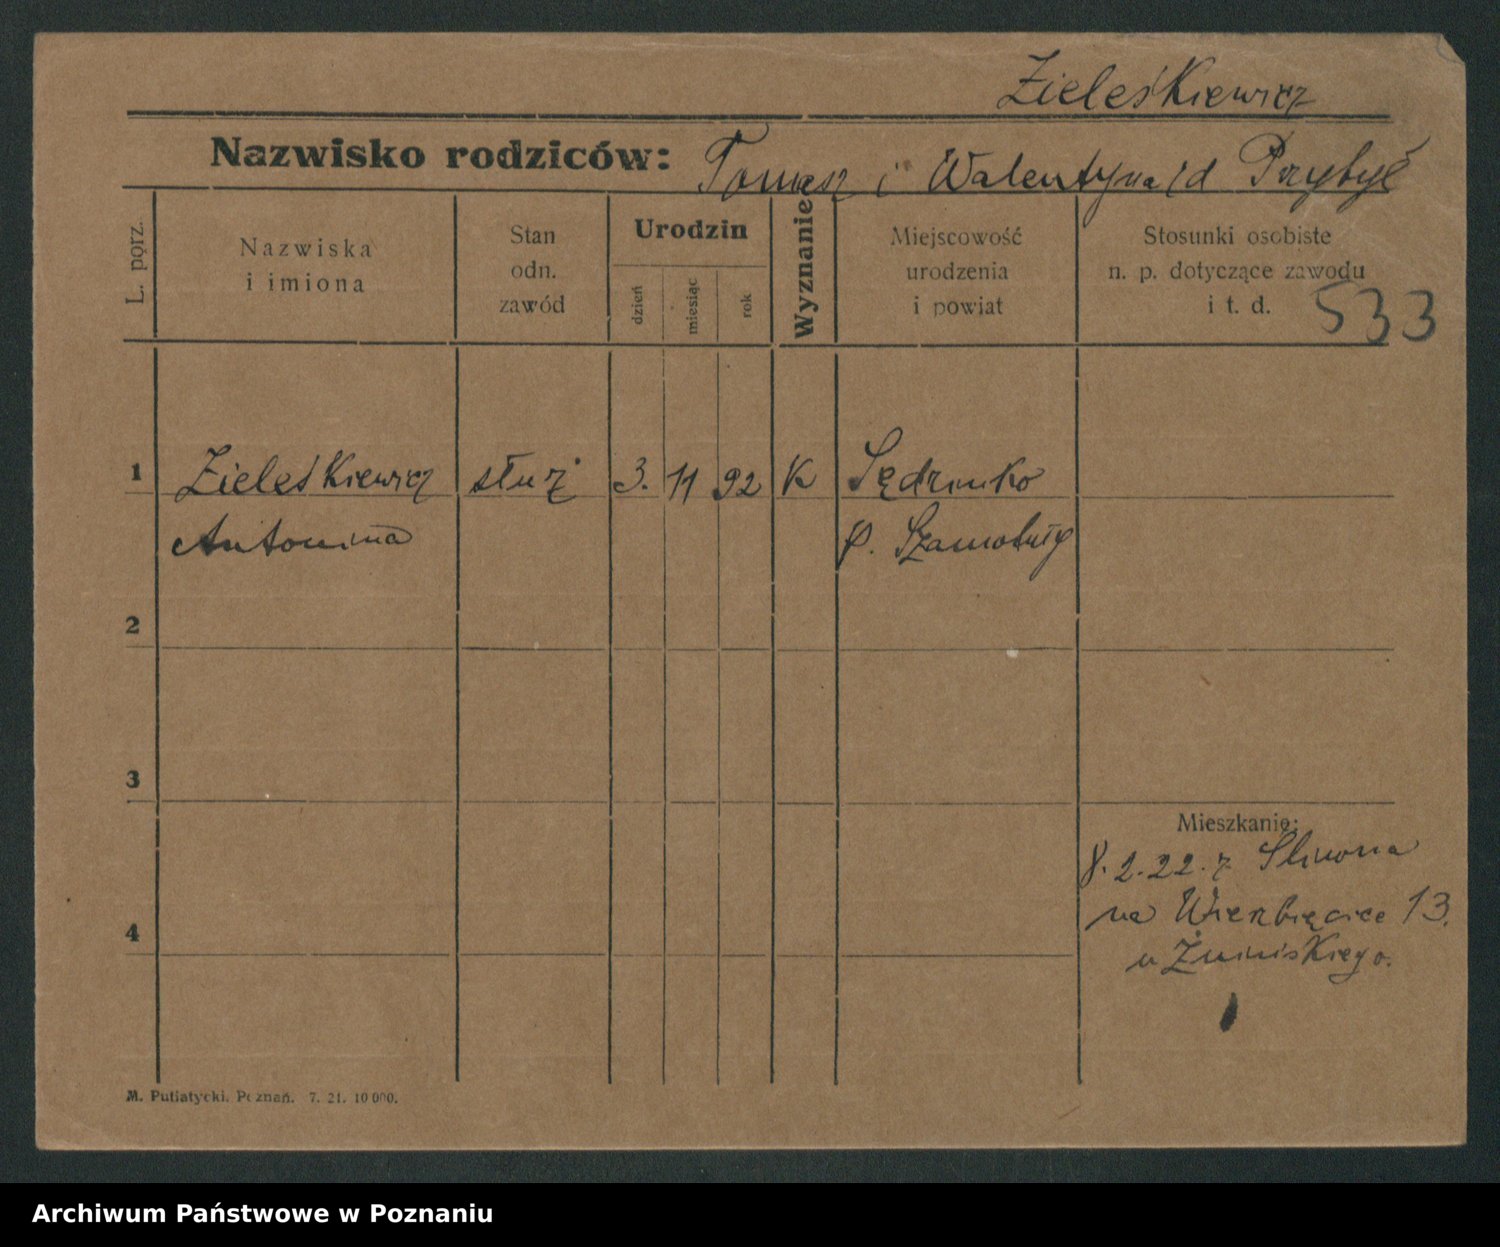 Zieleśkiewicz
Nazwisko rodziców: Tomasz i Walentyna /d Przybył
L. porz.
Nazwiska
i imiona
Stan
odn.
zawód
Urodzin
dzień
miesiąc
rok
Wyznanie
Miejscowość
urodzenia
i powiat
Stosunki osobiste
n. p. dotyczące zawodu
i t. d.
533
1 Zieleśkiewicz służ 3. 11 92 K Sędzinko
Antonina p. Szamotuły
2
3
Mieszkanie:
8.2.22. z Śliwna
na Wierzbięcice 13.
4
u Żnińskiego.
M. Putiatycki. Poznań. 7. 21. 10 000.
Archiwum Państwowe w Poznaniu